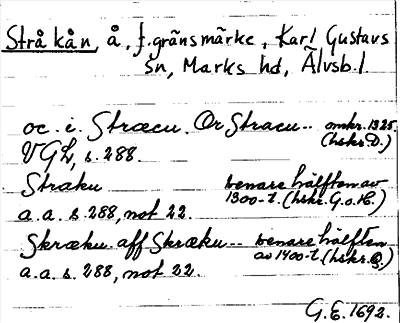 Stråkån, å, f. gränsmärke, Karl Gustavs
sn, Marks hd, Älvsb. l.
oc. i. Stræcu. Or Stracu... omkr. 1325.
VGL, s. 288. (hskr D.)
Straku senare hälften av
a.a. s. 288, not 22. 1300-t. (hskr. G.o.H.)
Skræku. aff Skræku... senare hälften
a.a. s. 288, not 22. av 1400-t. (hskr.
G.E. 1692.